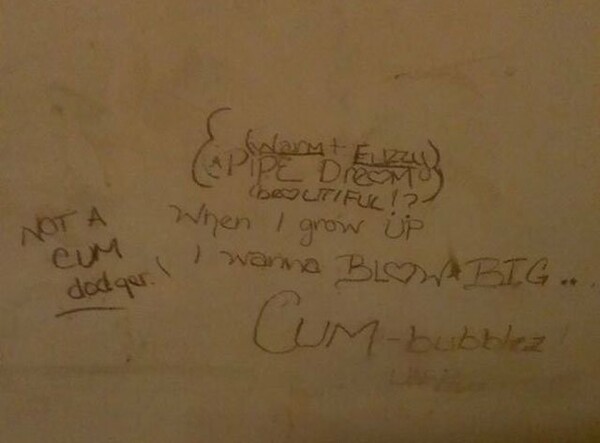 (Warm + Fuzzy)
PIPE DREAM
(BEAUTIFUL!?)
When I grow UP
I wanna BLOW BIG...
CUM-bubblez
NOT A
CUM
dodger!